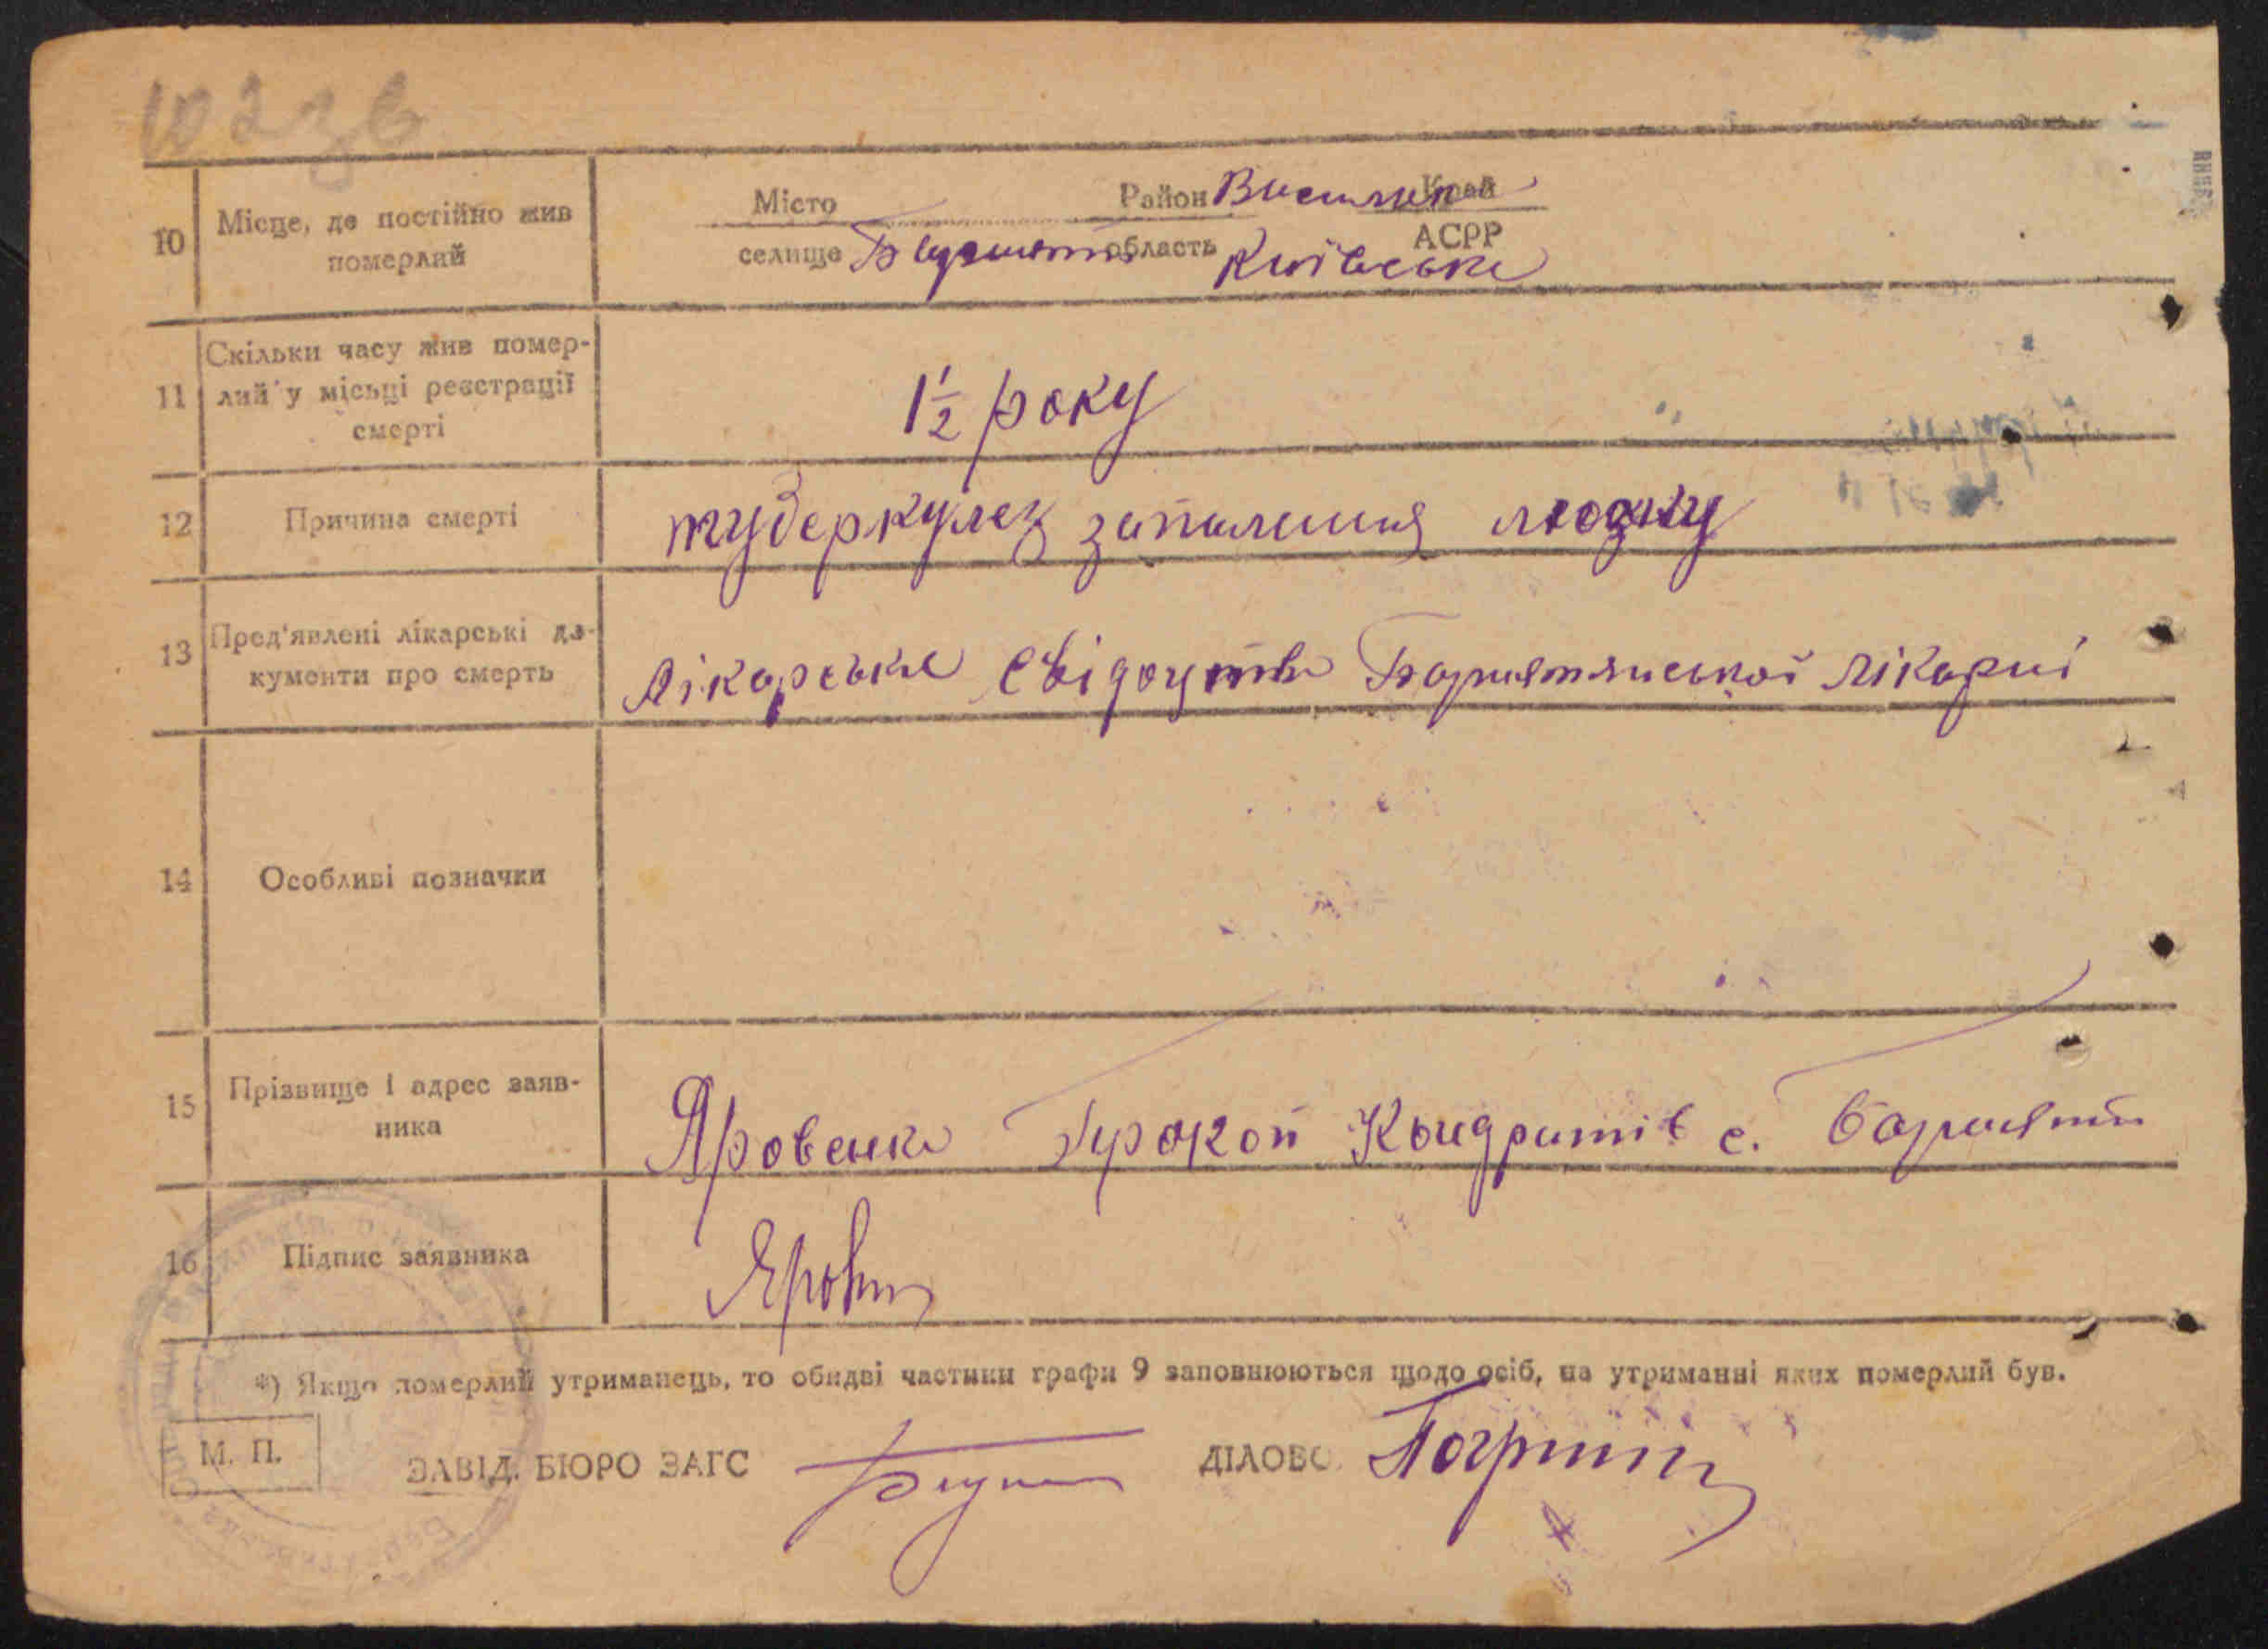 10
Місце, де постійно жив
померлий
Місто Район Васильк Край
селище область Київське АСРР
11
Скільки часу жив помер-
лий у місьці реєстрації
смерті
1½ року
12
Причина смерті
туберкулез запалення мозку
13
Пред'явлені лікарські до-
кументи про смерть
Лікарське свідоцтво Барахтянської лікарні
14
Особливі позначки
15
Прізвище і адрес заяв-
ника
Яровенко Прокоп Кондратів с. Барахти
16
Підпис заявника
*) Якщо померлий утриманець, то обидві частини графи 9 заповнюються щодо осіб, на утриманні яких померлий був.
М. П.
ЗАВІД. БЮРО ЗАГС
ДІЛОВО.